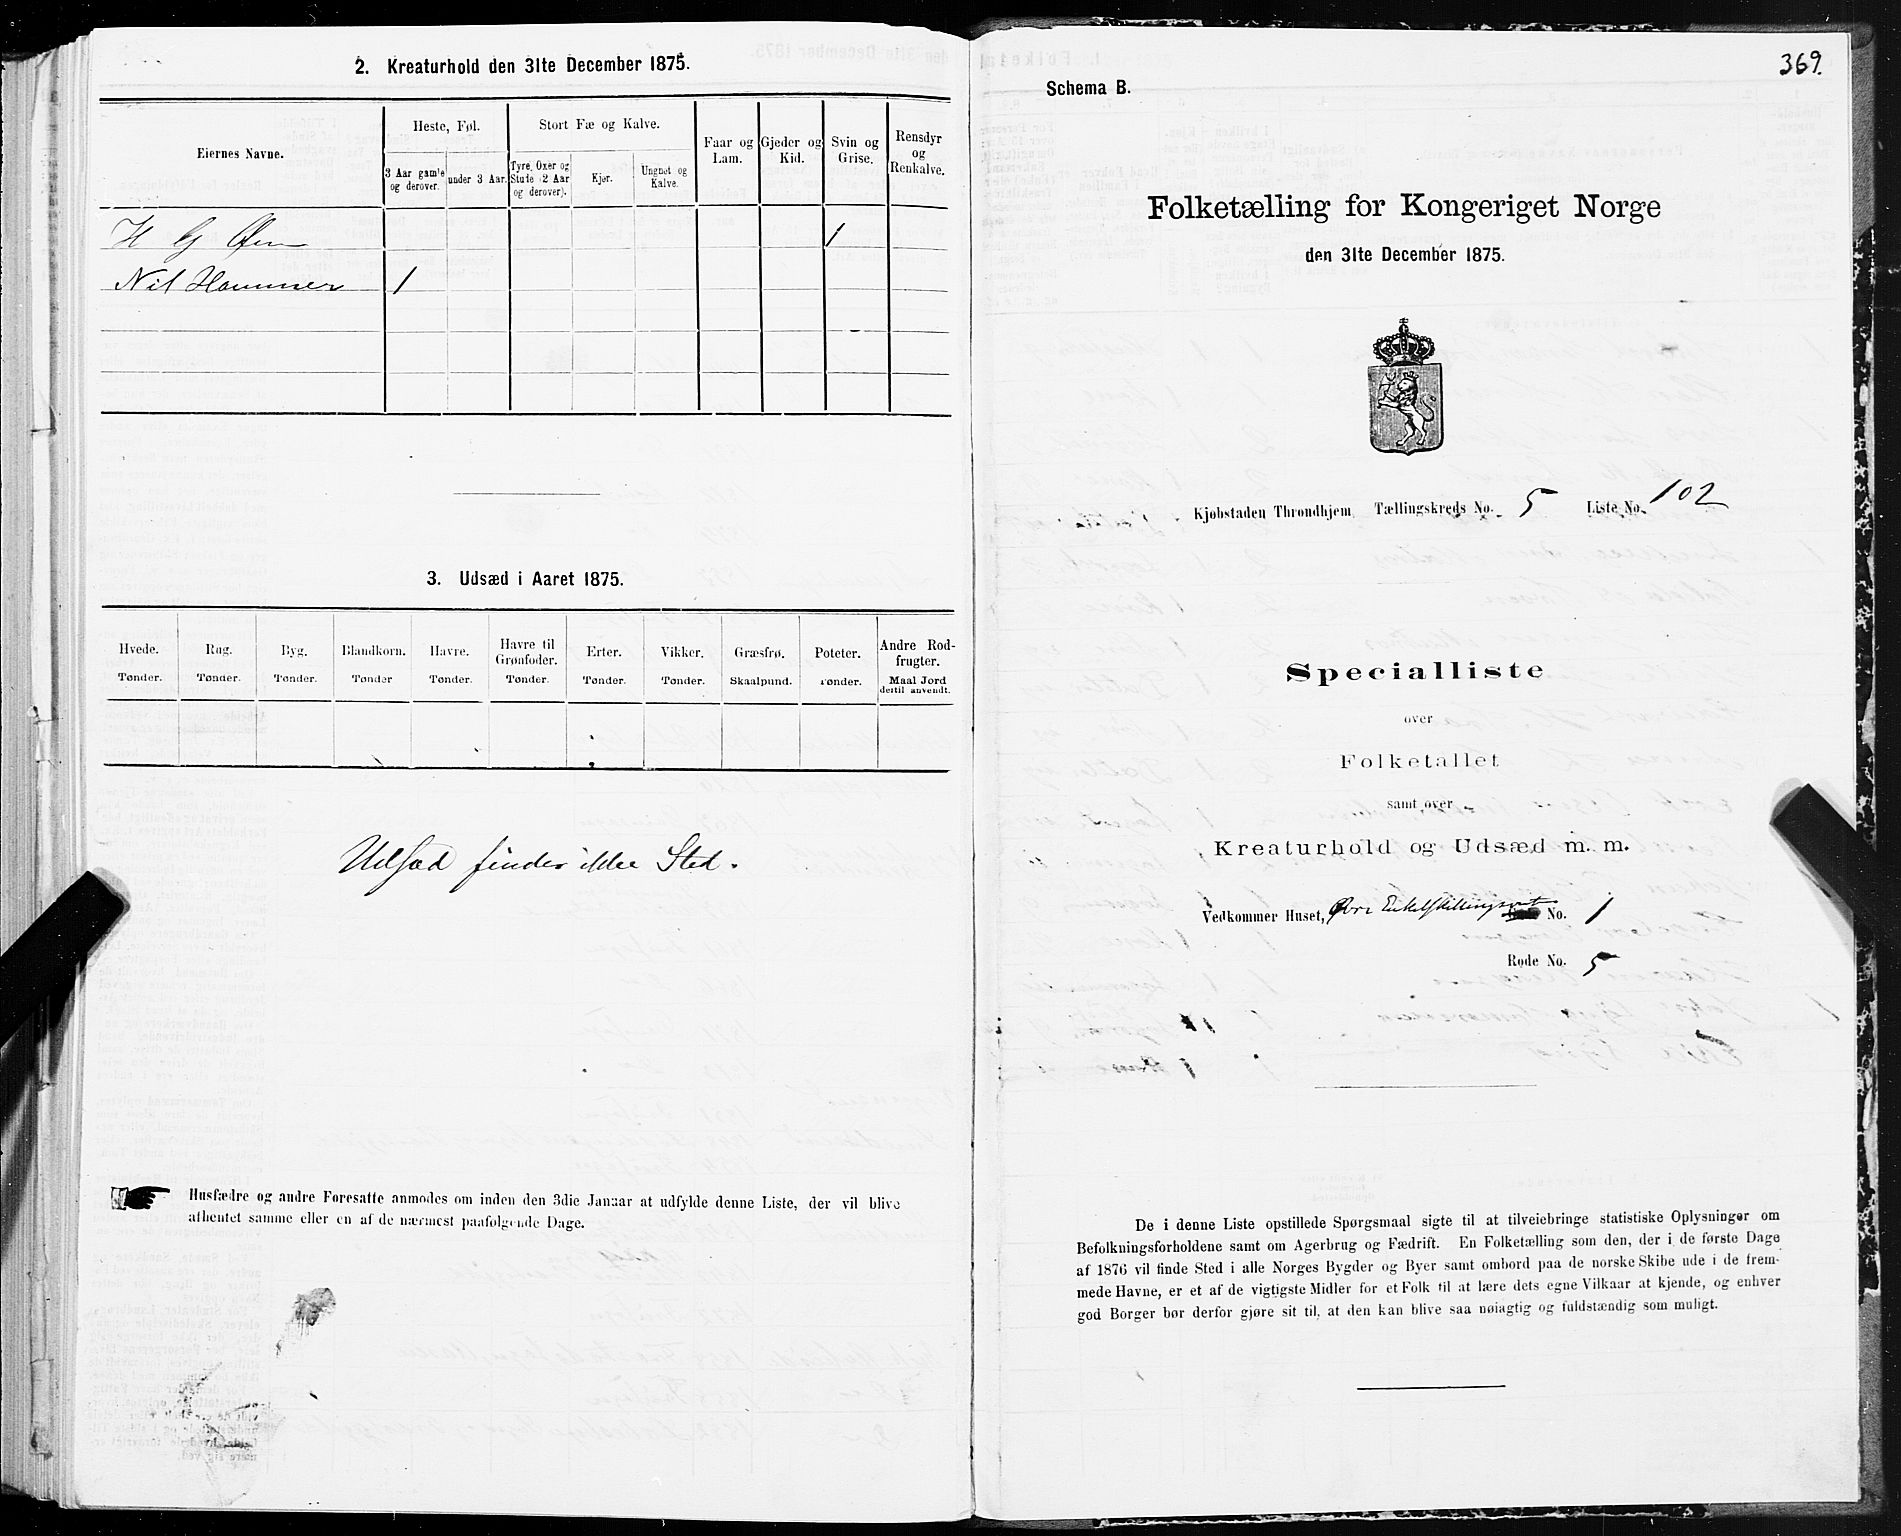 2. Kreaturhold den 31te December 1875.
Eiernes Navne.
Heste, Føl.
Stort Fæ og Kalve.
Faar og Lam.
Gjeder og Kid.
Svin og Grise.
Rensdyr og Renkalve.
3 Aar gamle og derover.
under 3 Aar.
Tyre, Oxer og Stute (2 Aar og derover).
Kjør.
Ungnøt og Kalve.
H G Øien 1
Nil Hammer 1
3. Udsæd i Aaret 1875.
Hvede. Rug. Byg. Blandkorn. Havre. Havre til Grønfoder. Erter. Vikker. Græsfrø. Poteter. Andre Rodfrugter.
Tønder. Tønder. Tønder. Tønder Tønder. Tønder. Tønder. Tønder. Skaalpund. Tønder. Maal Jord dertil anvendt.
Udsæd finder ikke Sted.
Husfædre og andre Foresatte anmodes om inden den 3die Januar at udfylde denne Liste, der vil blive
afhentet samme eller en af de nærmest paafølgende Dage.
369.
Schema B.
Folketælling for Kongeriget Norge
den 31te December 1875.
Kjøbstaden Throndhjem Tællingskreds No. 5 Liste No. 102
Specialliste
over
Folketallet
samt over
Kreaturhold og Udsæd m. m.
Vedkommer Huset, Øvre Enkelskillingsvt No. 1
Rode No. 5
De i denne Liste opstillede Spørgsmaal sigte til at tilveiebringe statistiske Oplysninger om
Befolkningsforholdene samt om Agerbrug og Fædrift. En Folketælling som den, der i de første Dage
af 1876 vil finde Sted i alle Norges Bygder og Byer samt ombord paa de norske Skibe ude i de frem-
mede Havne, er et af de vigtigste Midler for et Folk til at lære dets egne Vilkaar at kjende, og enhver
god Borger bør derfor gjøre sit til, at den kan blive saa nøiagtig og fuldstændig som muligt.